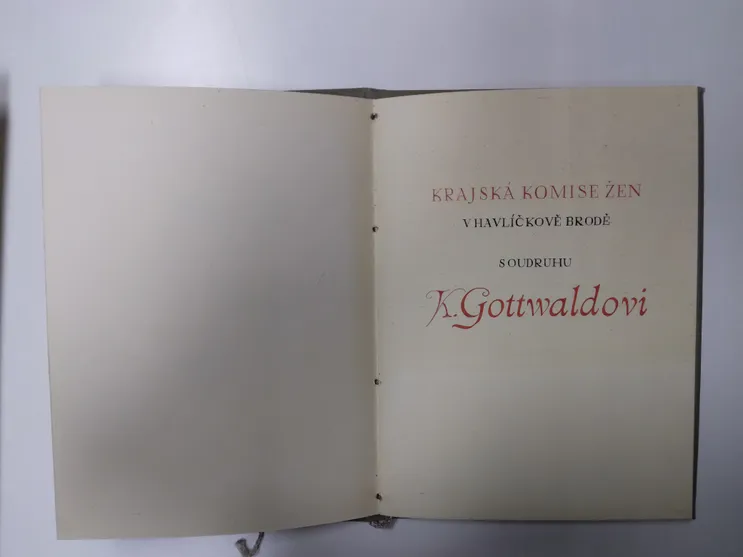 KRAJSKÁ KOMISE ŽEN
V HAVLÍČKOVĚ BRODĚ
SOUDRUHU
K. Gottwaldovi